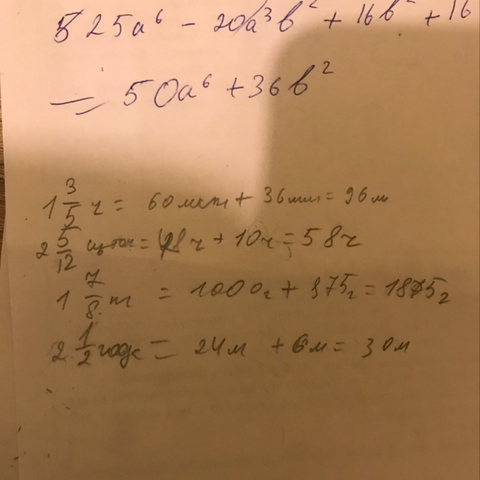 25a⁶ - 20a³b² + 16b² + 16
= 50a⁶ + 36b²
1 3/5 ч = 60мин + 36мин = 96м
2 5/12 суток = 48ч + 10ч = 58ч
1 7/8 т = 1000г + 875г = 1875г
2 1/2 года = 24м + 6м = 30м